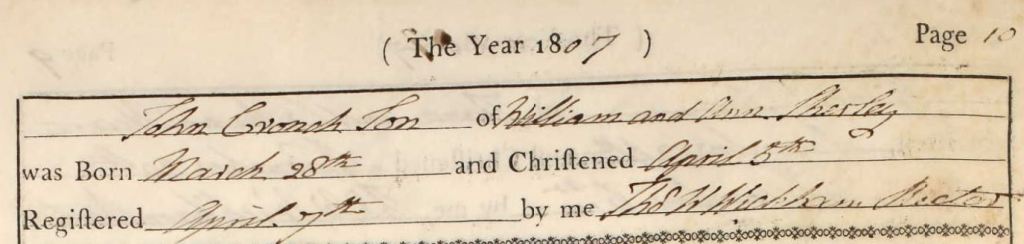 ( The Year 1807 ) Page 10
John Crouch Son of William and Ann Sherley
was Born March 28th and Chriſtened April 5th
Regiſtered April 7th by me Thos W Wickham Rector